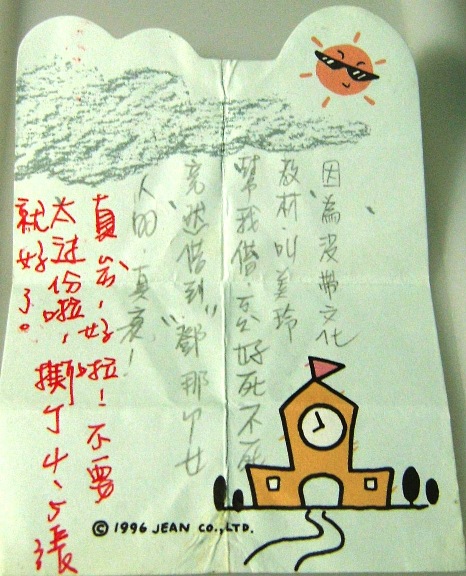 因為沒帶文化
教材,叫美玲
幫我借,好死不死
竟然借到"那女"
人的,真衰!
真,好啦!不要
太过份啦,撕了4、5張
就好了。
© 1996 JEAN CO., LTD.